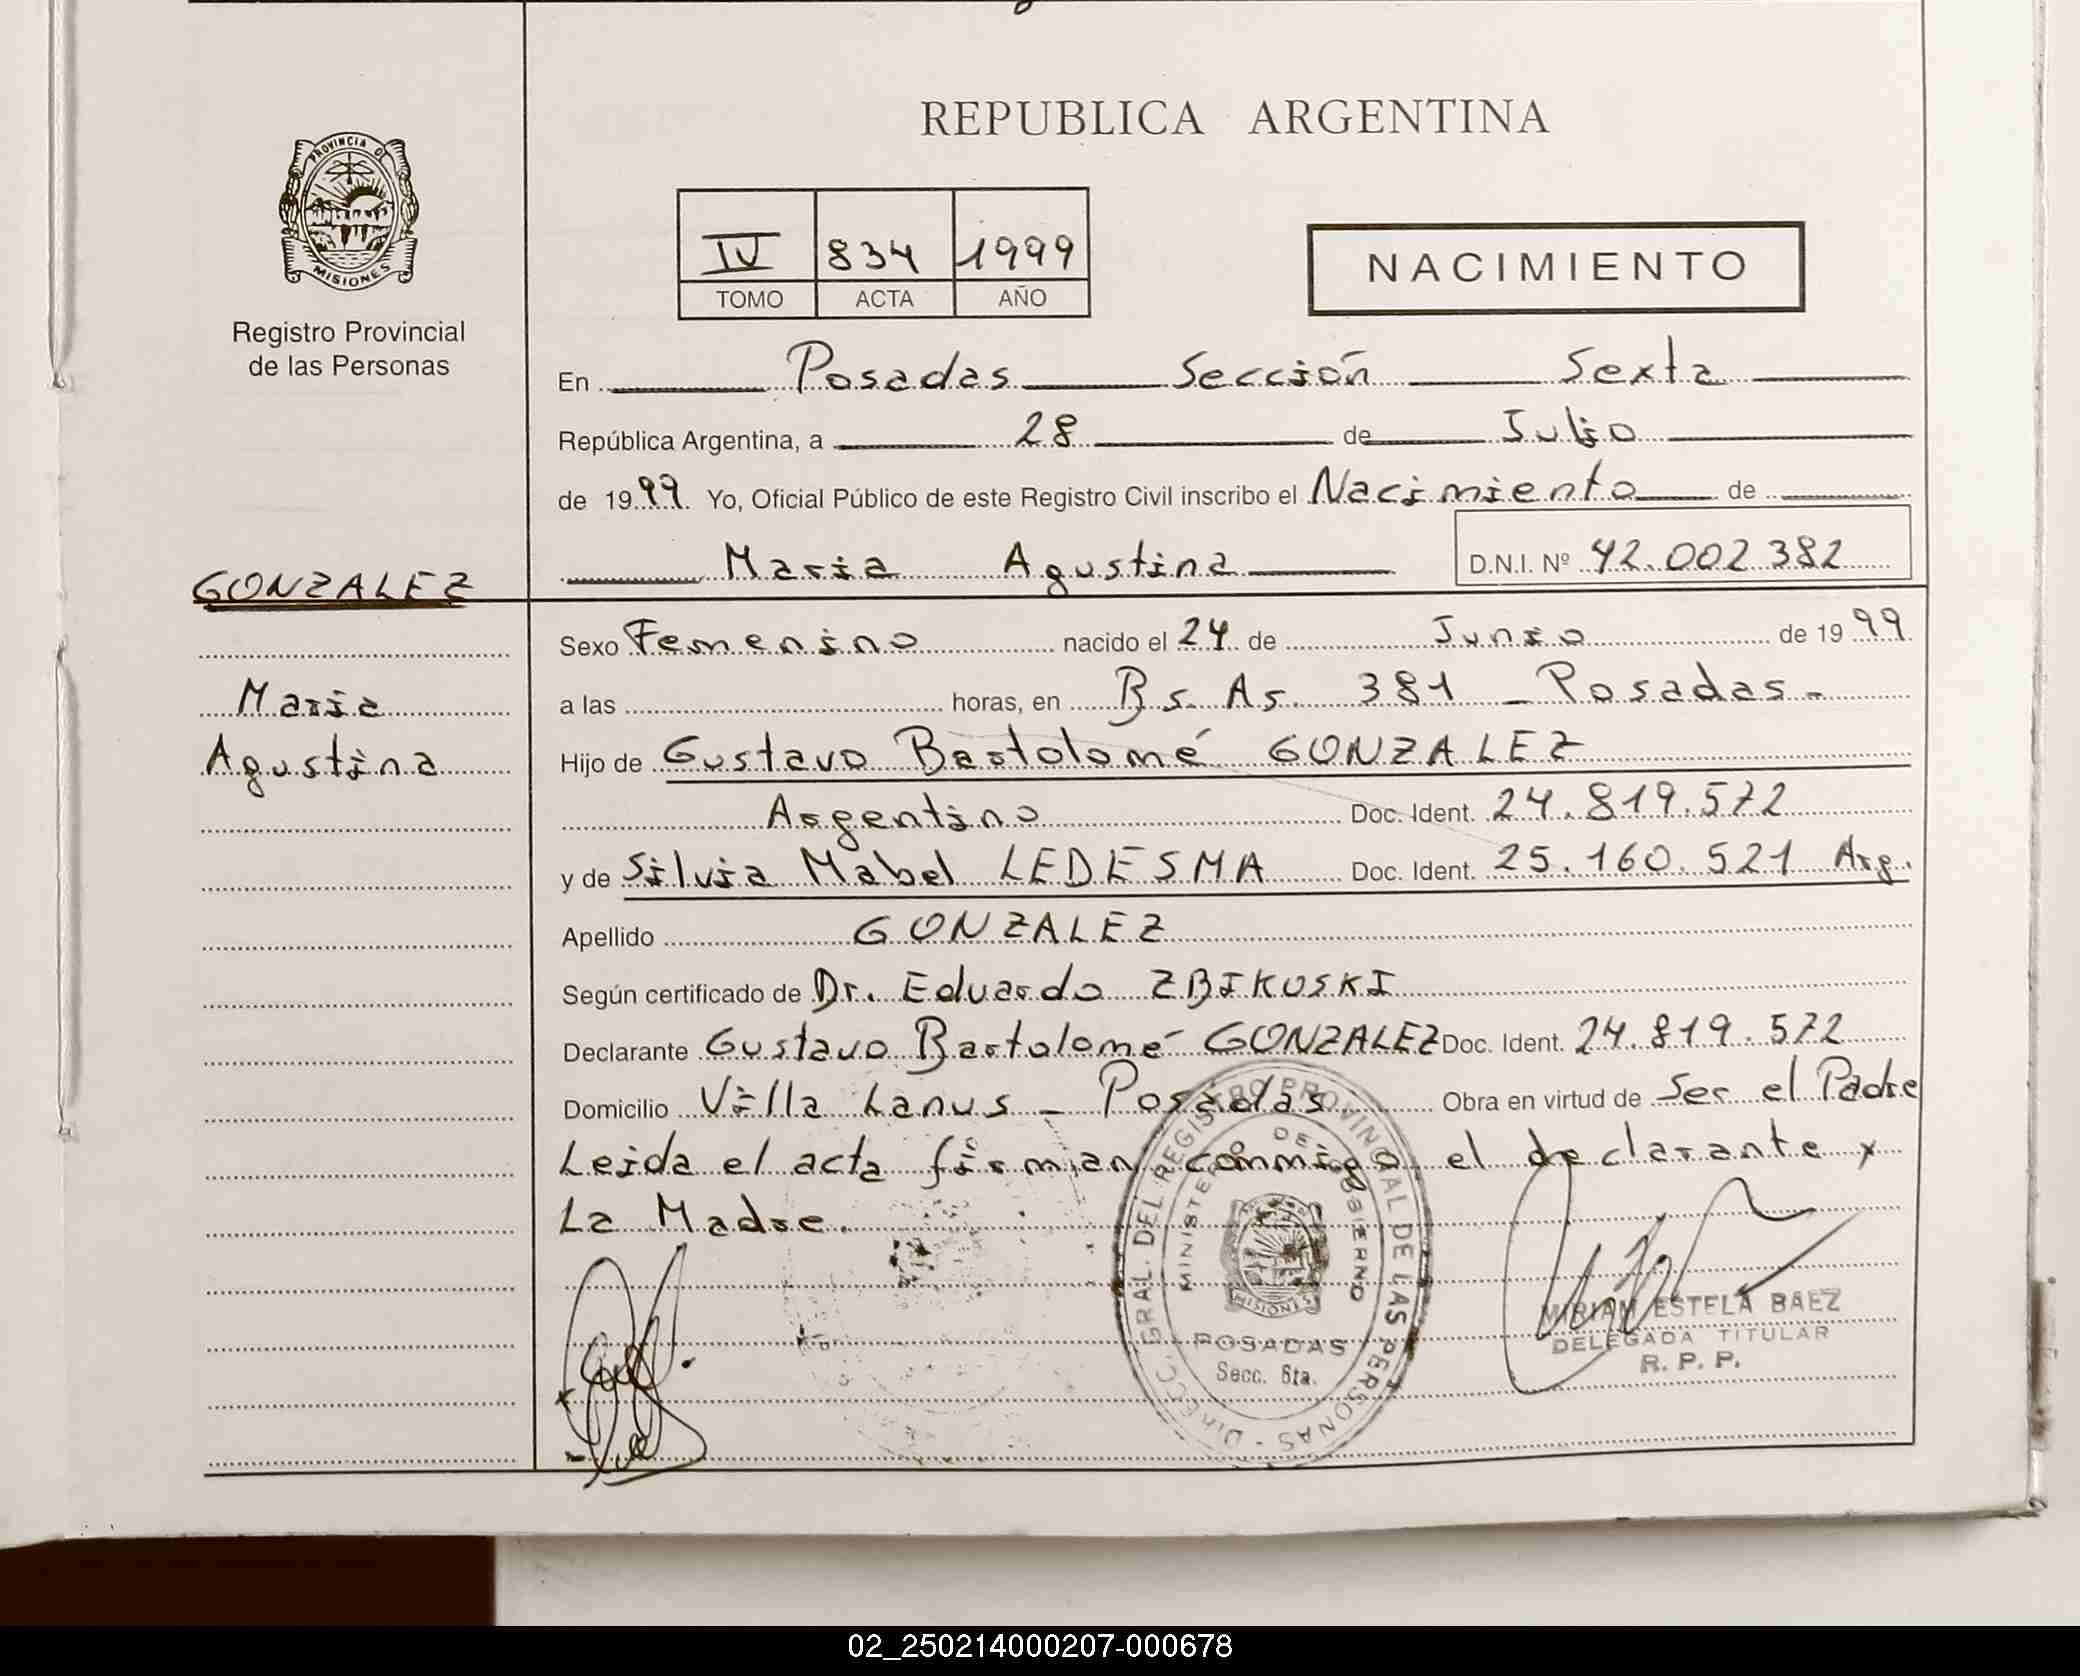 REPUBLICA ARGENTINA
PROVINCIA D
MISIONES
Registro Provincial
de las Personas
IV 834 1999
TOMO ACTA AÑO
NACIMIENTO
En Posadas Sección Sexta
República Argentina, a 28 de Julio
de 1999. Yo, Oficial Público de este Registro Civil inscribo el Nacimiento de
Maria Agustina D.N.I. Nº 42.002.382
GONZALEZ
Maria
Agustina
Sexo Femenino nacido el 24 de Junio de 1999
a las horas, en Bs. As. 381 - Posadas.-
Hijo de Gustavo Bartolomé GONZALEZ
Argentino Doc. Ident. 24.819.572
y de Silvia Mabel LEDESMA Doc. Ident. 25.160.521 Arg.
Apellido GONZALEZ
Según certificado de Dr. Eduardo ZBIKOSKI
Declarante Gustavo Bartolomé GONZALEZ Doc. Ident. 24.819.572
Domicilio Villa Lanus - Posadas Obra en virtud de Ser el Padre
Leida el acta firman conmigo el declarante y
La Madre.
DIRECC. GRAL. DEL REGISTRO PROVINCIAL DE LAS PERSONAS
MINISTERIO DE GOBIERNO
MISIONES
POSADAS
Secc. 6ta.
MIRIAM ESTELA BAEZ
DELEGADA TITULAR
R. P. P.
02_250214000207-000678